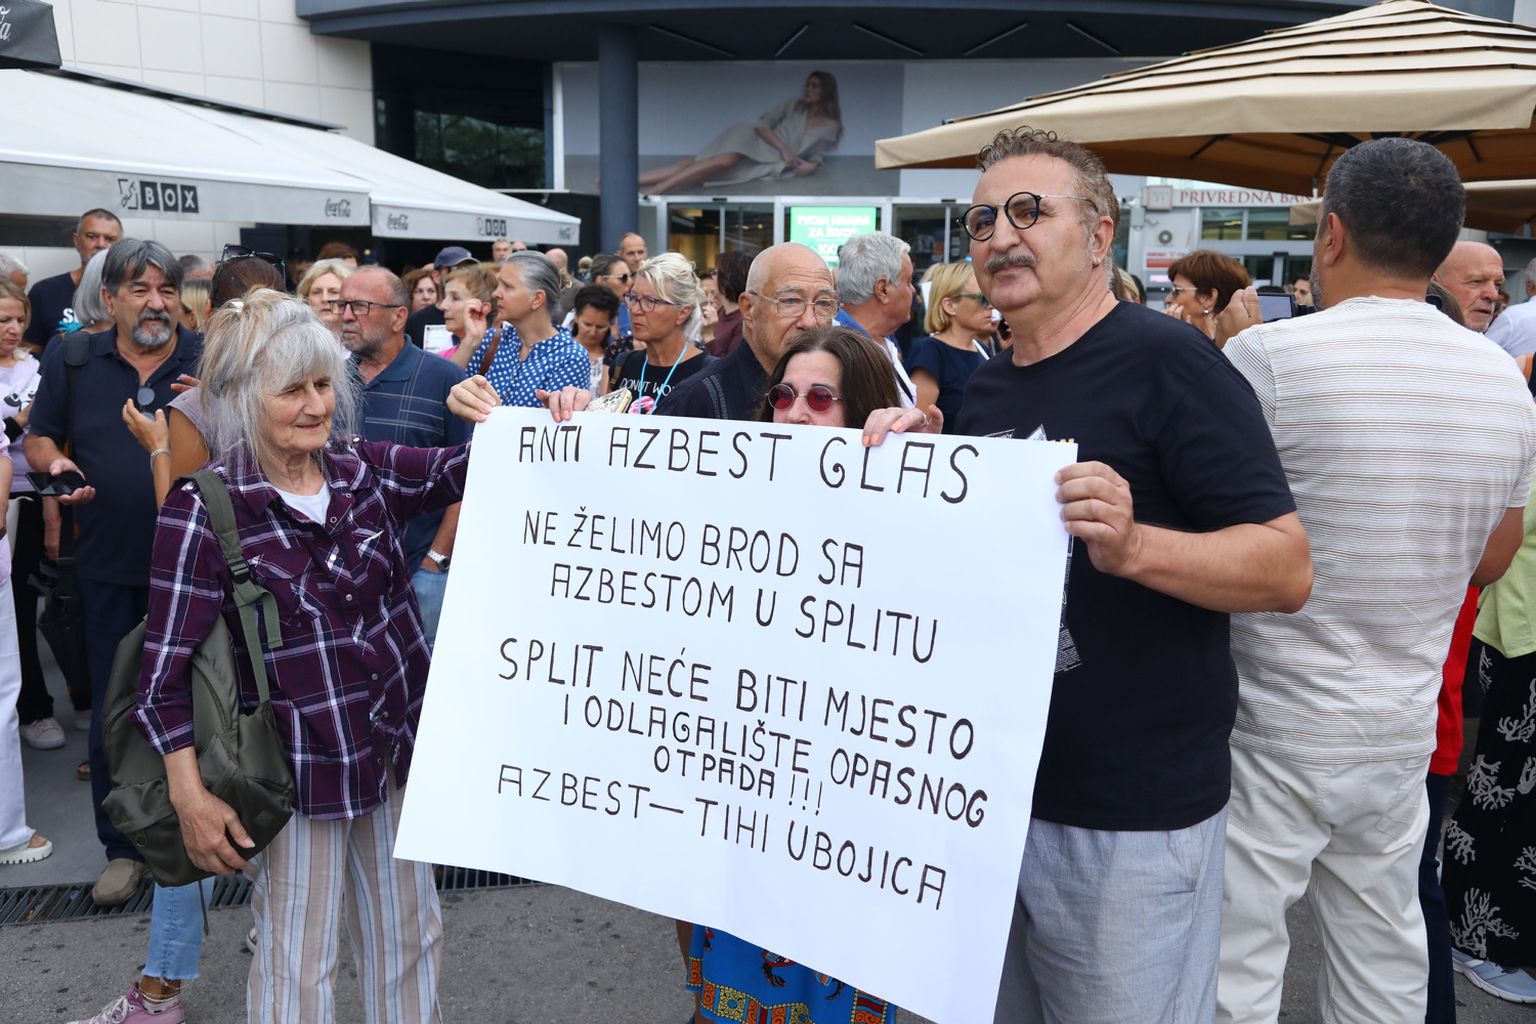 BOX
Coca-Cola
Coca-Cola
BOX
TVOJA HRANA
ZA ŽIVOT
PRIVREDNA BAN
DONUT WO
ANTI AZBEST GLAS
NE ŽELIMO BROD SA
AZBESTOM U SPLITU
SPLIT NEĆE BITI MJESTO
I ODLAGALIŠTE OPASNOG
OTPADA!!!
AZBEST—TIHI UBOJICA